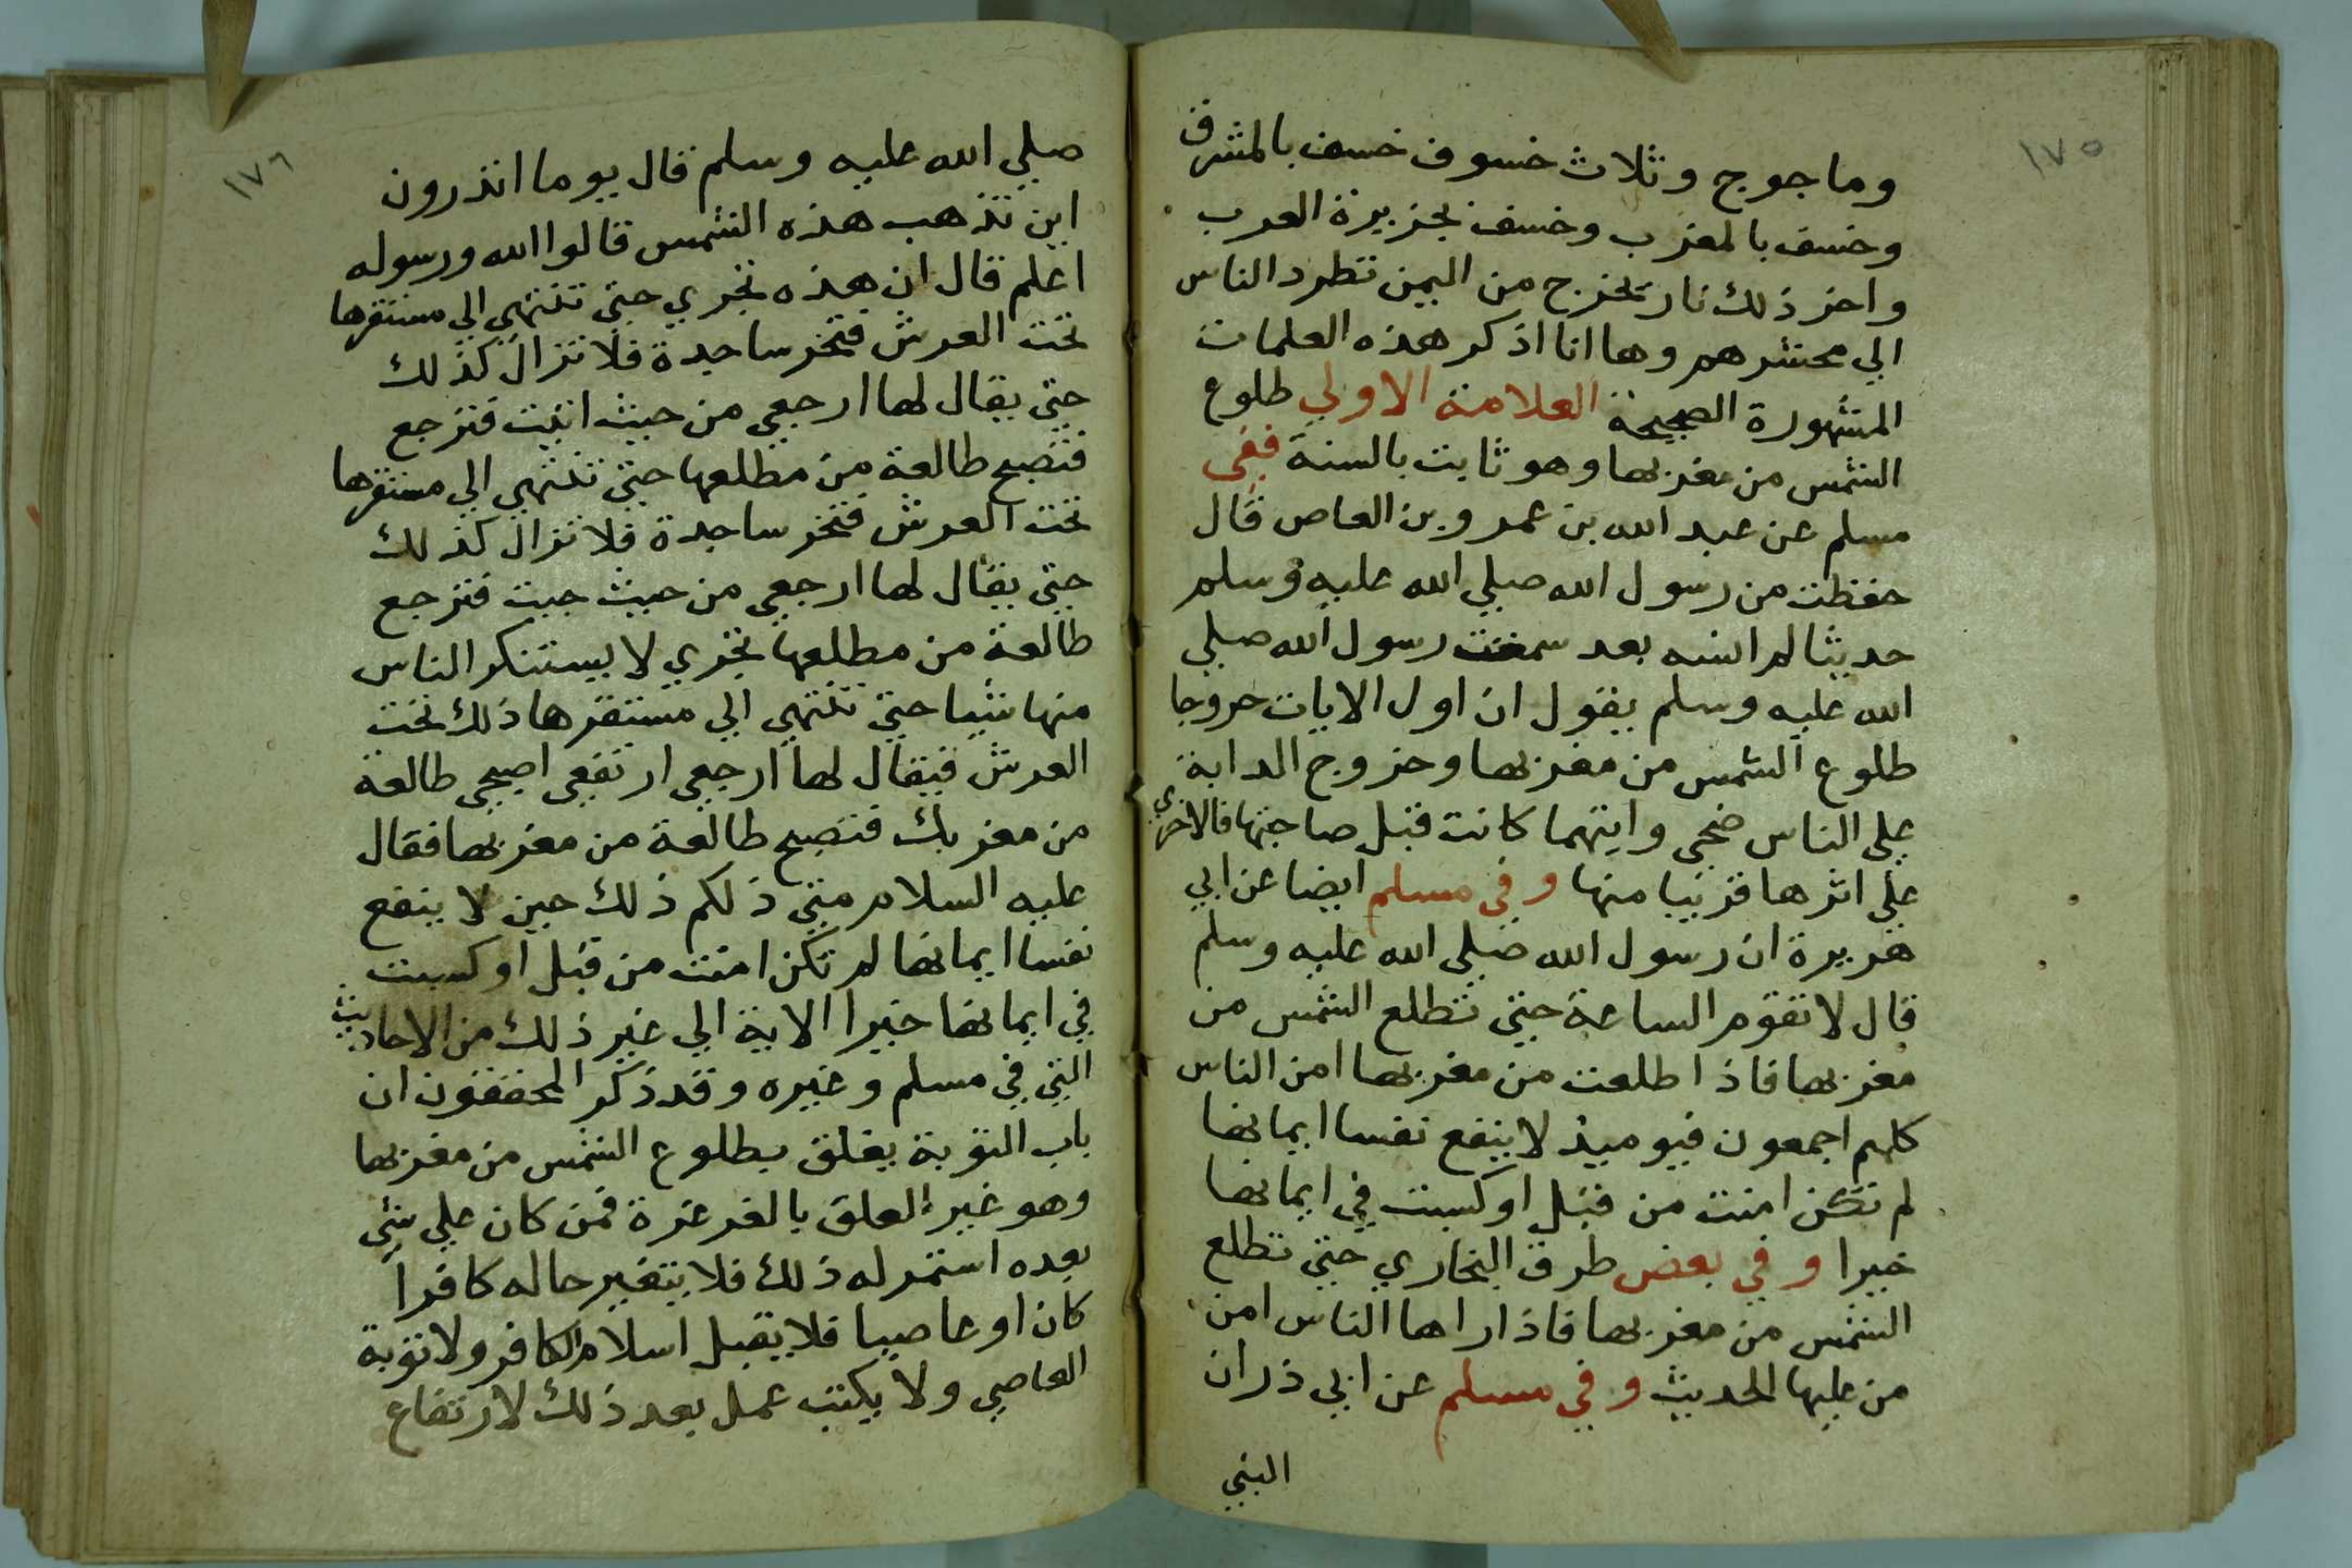 ١٧٥
وماجوج وثلاث خسوف خسف بالمشرق
وخسف بالمغرب وخسف بجزيرة العرب
واخر ذلك نار تخرج من اليمن تطرد الناس
الي محشرهم وها انا اذكر هذه العلمات
المشهورة الصحيحة العلامة الاولي طلوع
الشمس من مغربها وهو ثابت بالسنة ففى
مسلم عن عبد الله بن عمرو بن العاص قال
حفظت من رسول الله صلي الله عليه وسلم
حديثا لم انسه بعد سمعت رسول الله صلي
الله عليه وسلم يقول ان اول الايات خروجا
طلوع الشمس من مغربها وخروج الدابة
علي الناس ضحى وايتهما كانت قبل صاحبتها فالاخري
علي اثرها قريبا منها وفي مسلم ايضا عن ابي
هريرة ان رسول الله صلي الله عليه وسلم
قال لا تقوم الساعة حتي تطلع الشمس من
مغربها فاذا طلعت من مغربها امن الناس
كلهم اجمعون فيوميذ لا ينفع نفسا ايمانها
لم تكن امنت من قبل او كسبت في ايمانها
خيرا وفي بعض طرق البخاري حتي تطلع
الشمس من مغربها فاذا راها الناس امن
من عليها الحديث وفي مسلم عن ابي ذر ان
النبي
١٧٦
صلي الله عليه وسلم قال يوما اتدرون
اين تذهب هذه الشمس قالوا الله ورسوله
اعلم قال ان هذه تجري حتي تنتهي الي مستقرها
تحت العرش فتخر ساجدة فلا تزال كذلك
حتي يقال لها ارجعي من حيث اتيت فترجع
فتصبح طالعة من مطلعها حتي تنتهي الي مستقرها
تحت العرش فتخر ساجدة فلا تزال كذلك
حتي يقال لها ارجعي من حيث جيت فترجع
طالعة من مطلعها تجري لا يستنكر الناس
منها شيا حتي تنتهي الي مستقرها ذلك تحت
العرش فيقال لها ارجعي ارتفعي اصبحي طالعة
من مغربك فتصبح طالعة من مغربها فقال
عليه السلام متي ذلكم ذلك حين لا ينفع
نفسا ايمانها لم تكن امنت من قبل او كسبت
في ايمانها خيرا الاية الي غير ذلك من الاحاديث
التي في مسلم وغيره وقد ذكر المحققون ان
باب التوبة يغلق بطلوع الشمس من مغربها
وهو غير العلق بالغرغرة فمن كان علي شئ
بعده استمر له ذلك فلا يتغير حاله كافراً
كان او عاصيا فلا يقبل اسلام الكافر ولا توبة
العاصي ولا يكتب عمل بعد ذلك لارتفاع